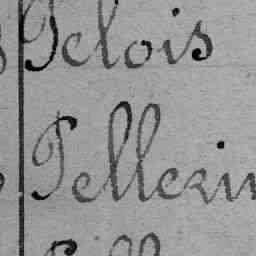 Pelois
Pellerin